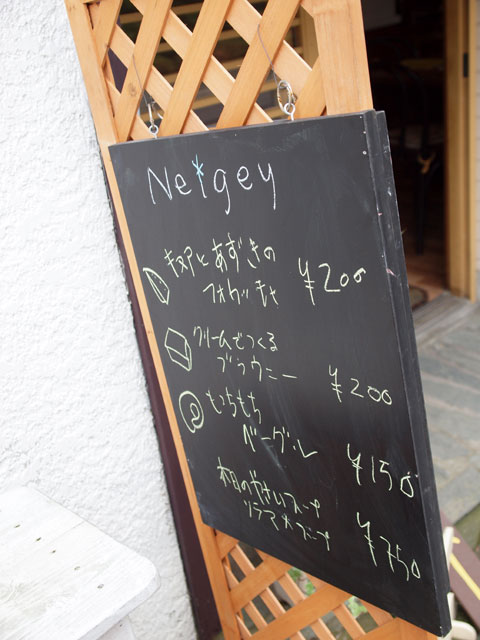 Neigey
キヌアとあずきの
フォカッチャ ¥200
クリームでつくる
ブラウニー ¥200
もちもち
ベーグル ¥150
本日のやさいスープ
¥750